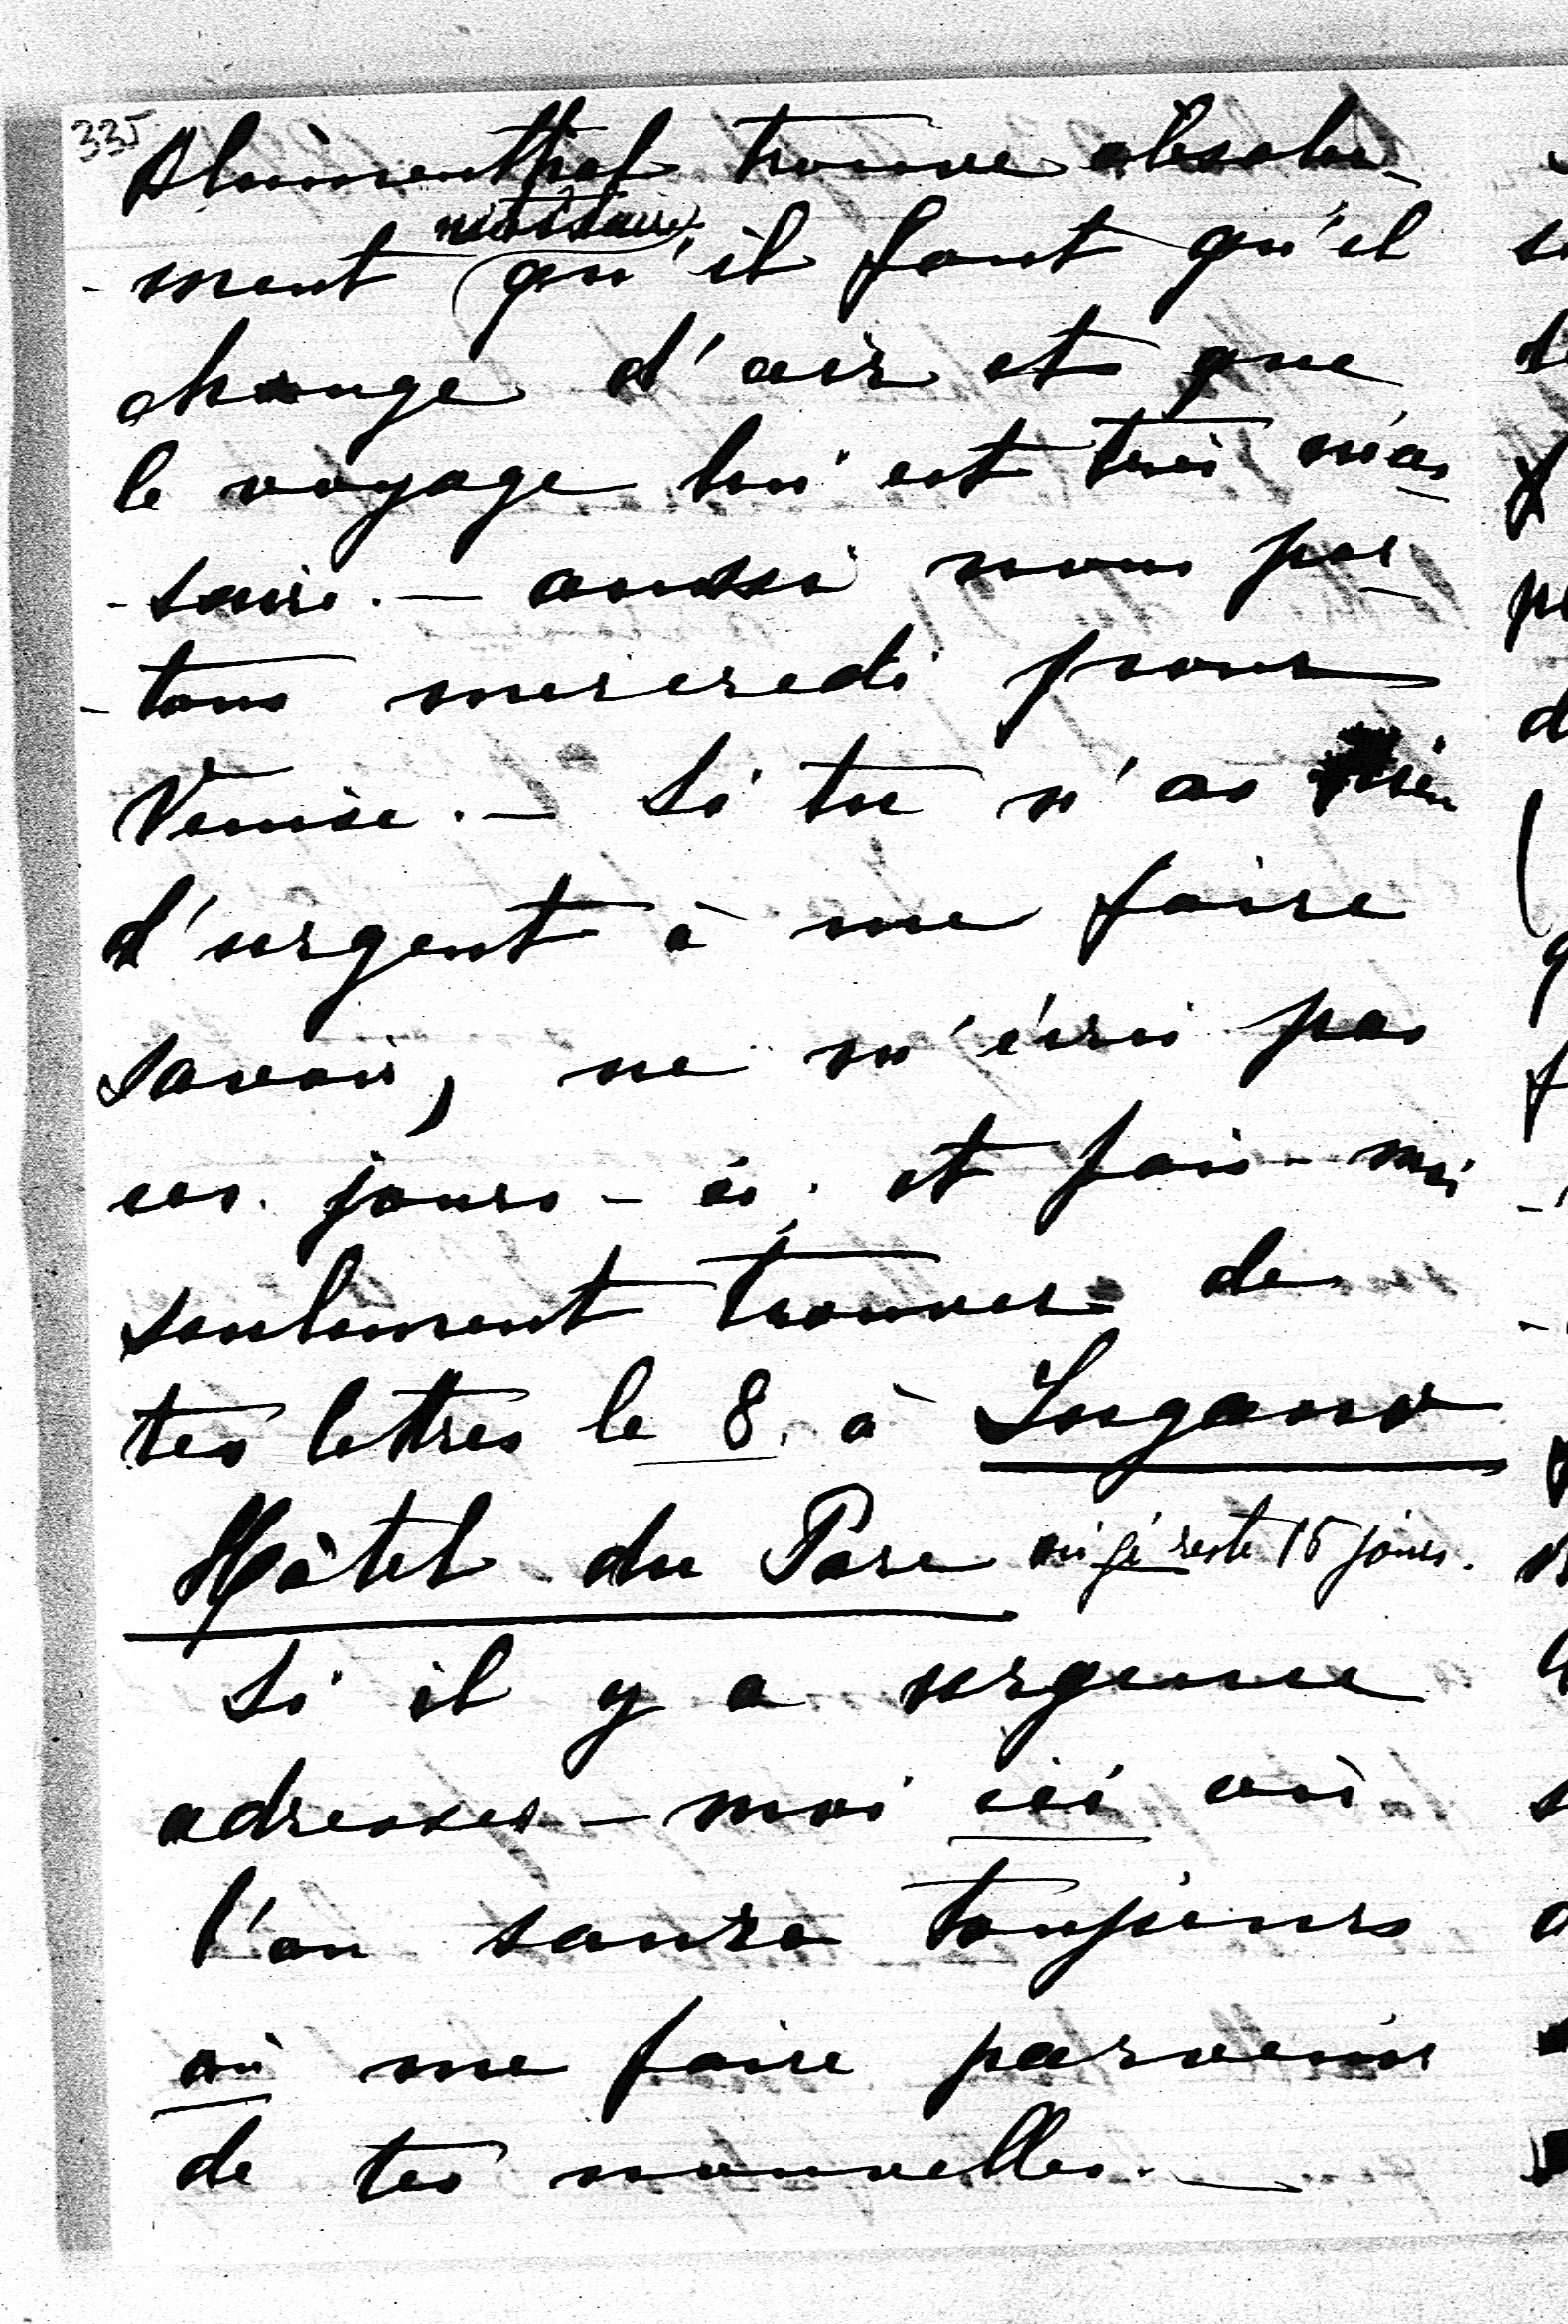 335
Blumenthal trouve absolu-
-ment nécessaire qu'il faut qu'il
change d'air et que
le voyage lui est très néces-
-saire. — aussi nous par-
-tons mercredi pour
Venise. — Si tu n'as rien
d'urgent à me faire
savoir, ne m'écris pas
ces jours-ci, et fais-moi
seulement trouver de
tes lettres le 8. à Lugano
Hôtel du Parc où je reste 15 jours.
Si il y a urgence
adresses-moi ici où
l'on saura toujours
où me faire parvenir
de tes nouvelles. —